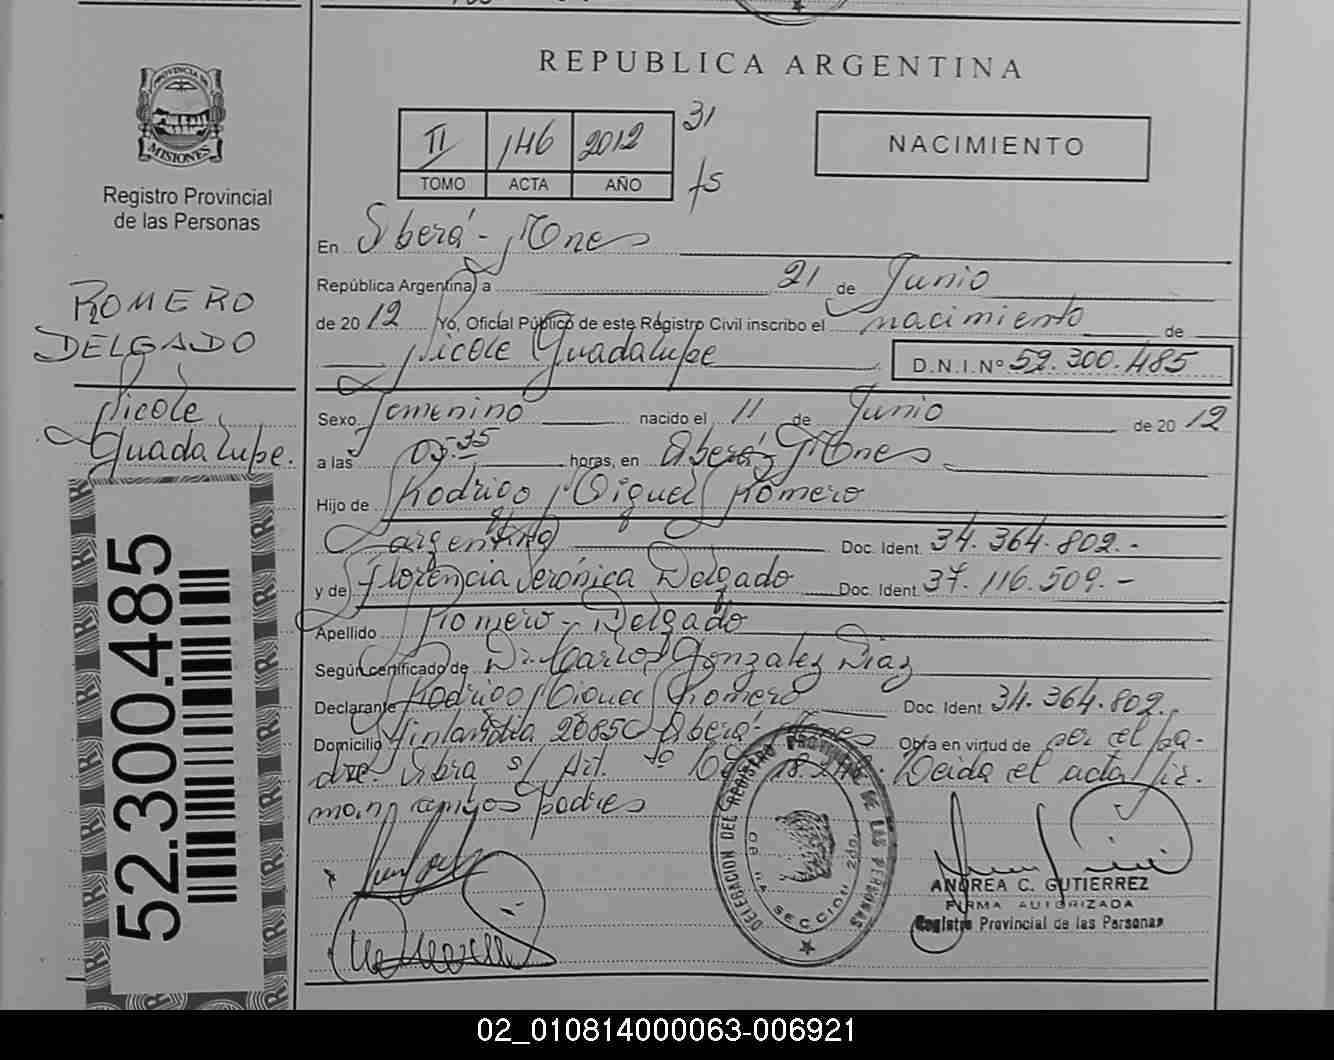 REPUBLICA ARGENTINA
PROVINCIA DE
MISIONES
Registro Provincial
de las Personas
II 146 2012 31
TOMO ACTA AÑO fs
NACIMIENTO
En Oberá - Mnes
República Argentina, a 21 de Junio
de 2012 Yo, Oficial Público de este Registro Civil inscribo el nacimiento de
Nicole Guadalupe D.N.I. Nº 52.300.485
ROMERO
DELGADO
Nicole
Guadalupe.
Sexo femenino nacido el 11 de Junio de 2012
a las 05:35 horas, en Oberá, Mnes
Hijo de Rodrigo Miguel Romero
argentino Doc. Ident. 34.364.802.-
y de Florencia Verónica Delgado Doc. Ident. 37.116.509.-
Apellido Romero - Delgado
Según certificado de Dr. Carlos Gonzalez Diaz
Declarante Rodrigo Miguel Romero Doc. Ident. 34.364.802.-
Domicilio Finlandia Oberá - Mnes Obra en virtud de ser el pa-
dre. Leída el acta fir-
man ambos padres
52.300.485
DELEGACION DEL REGISTRO PROVINCIAL DE LAS PERSONAS
SECCION 2da.
ANDREA C. GUTIERREZ
FIRMA AUTORIZADA
Registro Provincial de las Personas
02_010814000063-006921